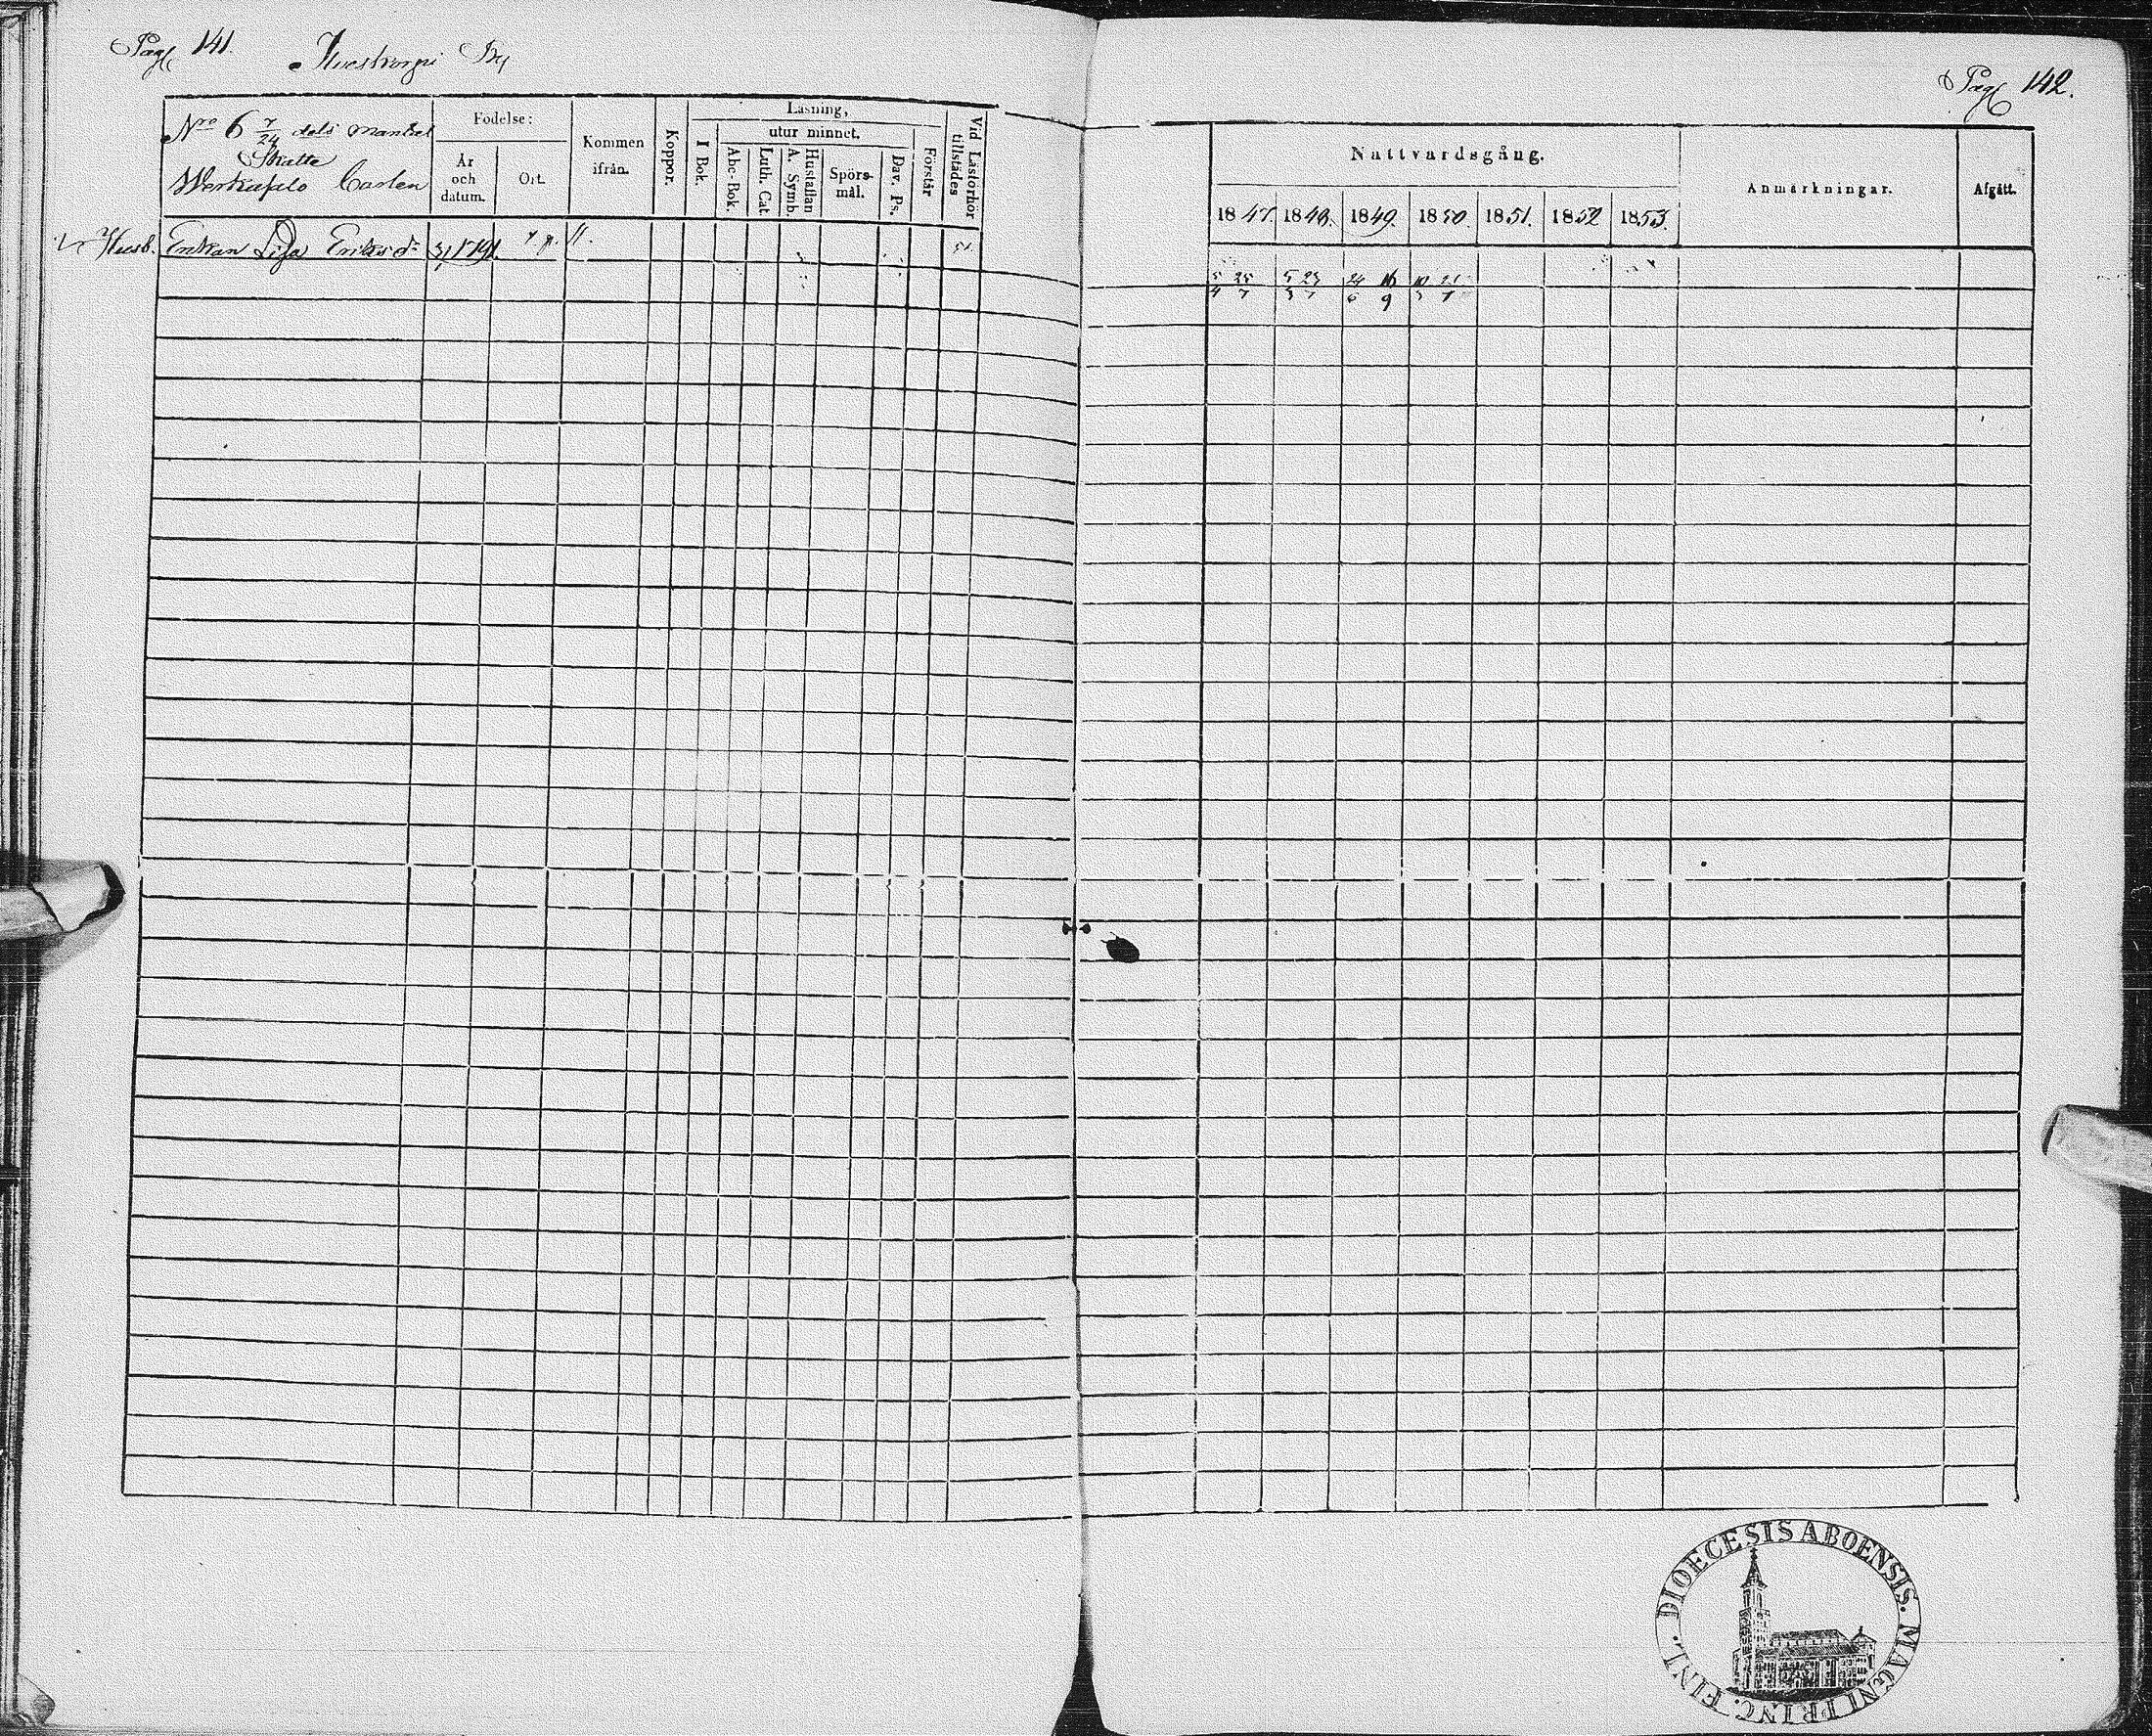 Pag 141.
By
Nro 6 7/24 dels mantal
Skatte
Födelse:
År
och
datum.
Ort.
Kommen
ifrån.
Koppor.
Läsning,
I Bok.
utur minnet.
Abc-Bok.
Luth. Cat.
A. Symb.
Hustaflan
Spörs-
mål.
Dav. Ps.
Förstår
Vid Läsförhör
tillstädes
Enkan Lisa Eriksdr 1791.
Pag 142.
Nattvardsgång.
1847. 1848. 1849. 1850. 1851. 1852 1853.
Anmärkningar.
Afgått.
5/4 25/7 5/3 23/7 24/6 16/9
DIOECESIS ABOENSIS. MAGNI PRINC. FINL.